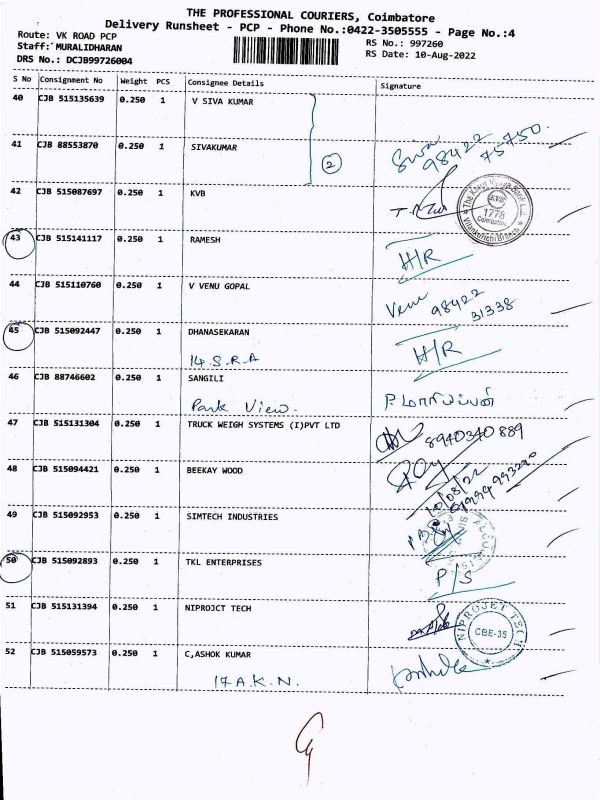 THE PROFESSIONAL COURIERS, Coimbatore
Delivery Runsheet - PCP - Phone No.:0422-3505555 - Page No.:4
Route: VK ROAD PCP
RS No.: 997260
Staff: MURALIDHARAN
RS Date: 10-Aug-2022
DRS No.: DCJB99726004
S No Consignment No Weight PCS Consignee Details Signature
40 CJB 515135639 0.250 1 V SIVA KUMAR
41 CJB 88553870 0.250 1 SIVAKUMAR 2 Siva 98422 75750
42 CJB 515087697 0.250 1 KVB The Karur Vysya Bank Ltd. KVB 1778 Coimbatore Vilankurichi Branch
43 CJB 515141117 0.250 1 RAMESH H/R
44 CJB 515110760 0.250 1 V VENU GOPAL Venu 98422 31338
45 CJB 515092447 0.250 1 DHANASEKARAN H/R
14 S.R.A
46 CJB 88746602 0.250 1 SANGILI P. மாரியப்பன்
Park View.
47 CJB 515131304 0.250 1 TRUCK WEIGH SYSTEMS (I)PVT LTD 8940340889
48 CJB 515094421 0.250 1 BEEKAY WOOD 10/08/22
49 CJB 515092953 0.250 1 SIMTECH INDUSTRIES
50 CJB 515092893 0.250 1 TKL ENTERPRISES P/S
51 CJB 515131394 0.250 1 NIPROJCT TECH NIPROJET TECH CBE-35
52 CJB 515059573 0.250 1 C,ASHOK KUMAR
17 A.K.N.